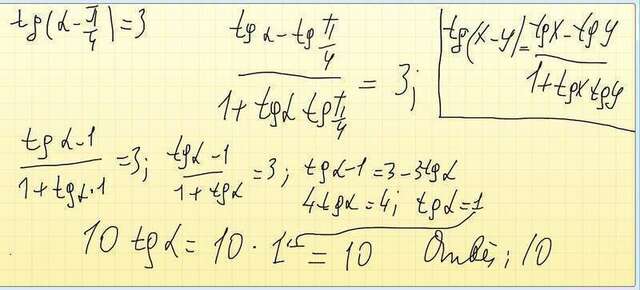 tg(α - π/4) = 3
(tg α - tg π/4)/(1 + tg α tg π/4) = 3;
tg(x - y) = (tg x - tg y)/(1 + tg x tg y)
(tg α - 1)/(1 + tg α · 1) = 3; (tg α - 1)/(1 + tg α) = 3; tg α - 1 = 3 - 3 tg α
4 tg α = 4; tg α = 1
10 tg α = 10 · 1 = 10 Ответ: 10